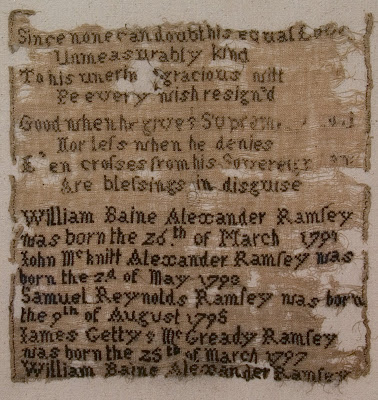 Since none can doubt his equal Love
Unmeasurably kind
To his unerin gracious will
Be every wish resign'd
Good when he gives Suprem
Nor leſs when he denies
E'en croſses from his Sovereign
Are bleſsings in disguise
William Baine Alexander Ramſey
was born the 26.th of March
John McKnitt Alexander Ramſey was
born the 2.d of May
Samuel Reynolds Ramſey was born
the 9th of August
James Gettys McGready Ramſey
was born the 25th of March 1797
William Baine Alexander Ramſey